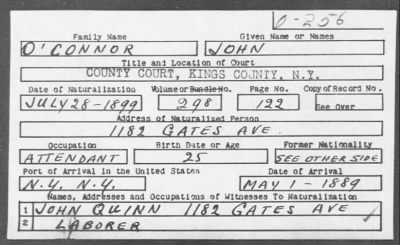 O-256
Family Name Given Name or Names
O'CONNOR JOHN
Title and Location of Court
COUNTY COURT, KINGS COUNTY, N.Y.
Date of Naturalization Volume or Bundle No. Page No. Copy of Record No.
JULY 28-1899 298 122 See Over
Address of Naturalized Person
1182 GATES AVE.
Occupation Birth Date or Age Former Nationality
ATTENDANT 25 SEE OTHER SIDE
Port of Arrival in the United States Date of Arrival
N.Y. N.Y. MAY 1-1889
Names, Addresses and Occupations of Witnesses To Naturalization
1 JOHN QUINN 1182 GATES AVE
2 LABORER